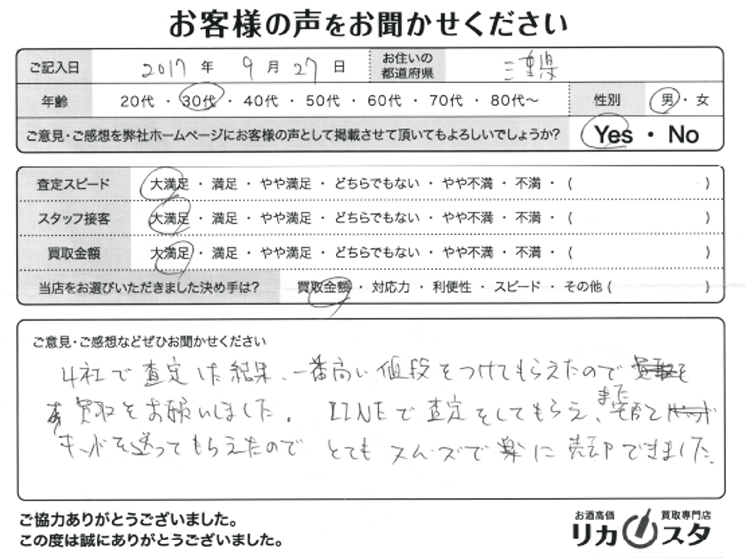 お客様の声をお聞かせください
ご記入日 2017 年 9 月 27 日 お住いの都道府県 三重県
年齢 20代 ・ 30代 ・ 40代 ・ 50代 ・ 60代 ・ 70代 ・ 80代〜 性別 男 ・ 女
ご意見・ご感想を弊社ホームページにお客様の声として掲載させて頂いてもよろしいでしょうか? Yes ・ No
査定スピード 大満足 ・ 満足 ・ やや満足 ・ どちらでもない ・ やや不満 ・ 不満 ・ ( )
スタッフ接客 大満足 ・ 満足 ・ やや満足 ・ どちらでもない ・ やや不満 ・ 不満 ・ ( )
買取金額 大満足 ・ 満足 ・ やや満足 ・ どちらでもない ・ やや不満 ・ 不満 ・ ( )
当店をお選びいただきました決め手は? 買取金額 ・ 対応力 ・ 利便性 ・ スピード ・ その他 ( )
ご意見・ご感想などぜひお聞かせください
4社で査定した結果、一番高い値段をつけてもらえたので
買取をお願いしました。LINEで査定をしてもらえ、また
キットを送ってもらえたので とても スムーズで 楽に 売却できました。
ご協力ありがとうございました。
この度は誠にありがとうございました。
お酒高価 買取専門店
リカスタ